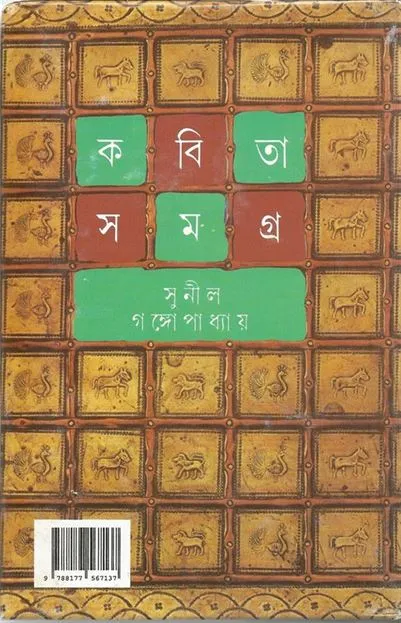 ক বি তা
স ম গ্র
সুনীল
গঙ্গোপাধ্যায়
9 788177 567137